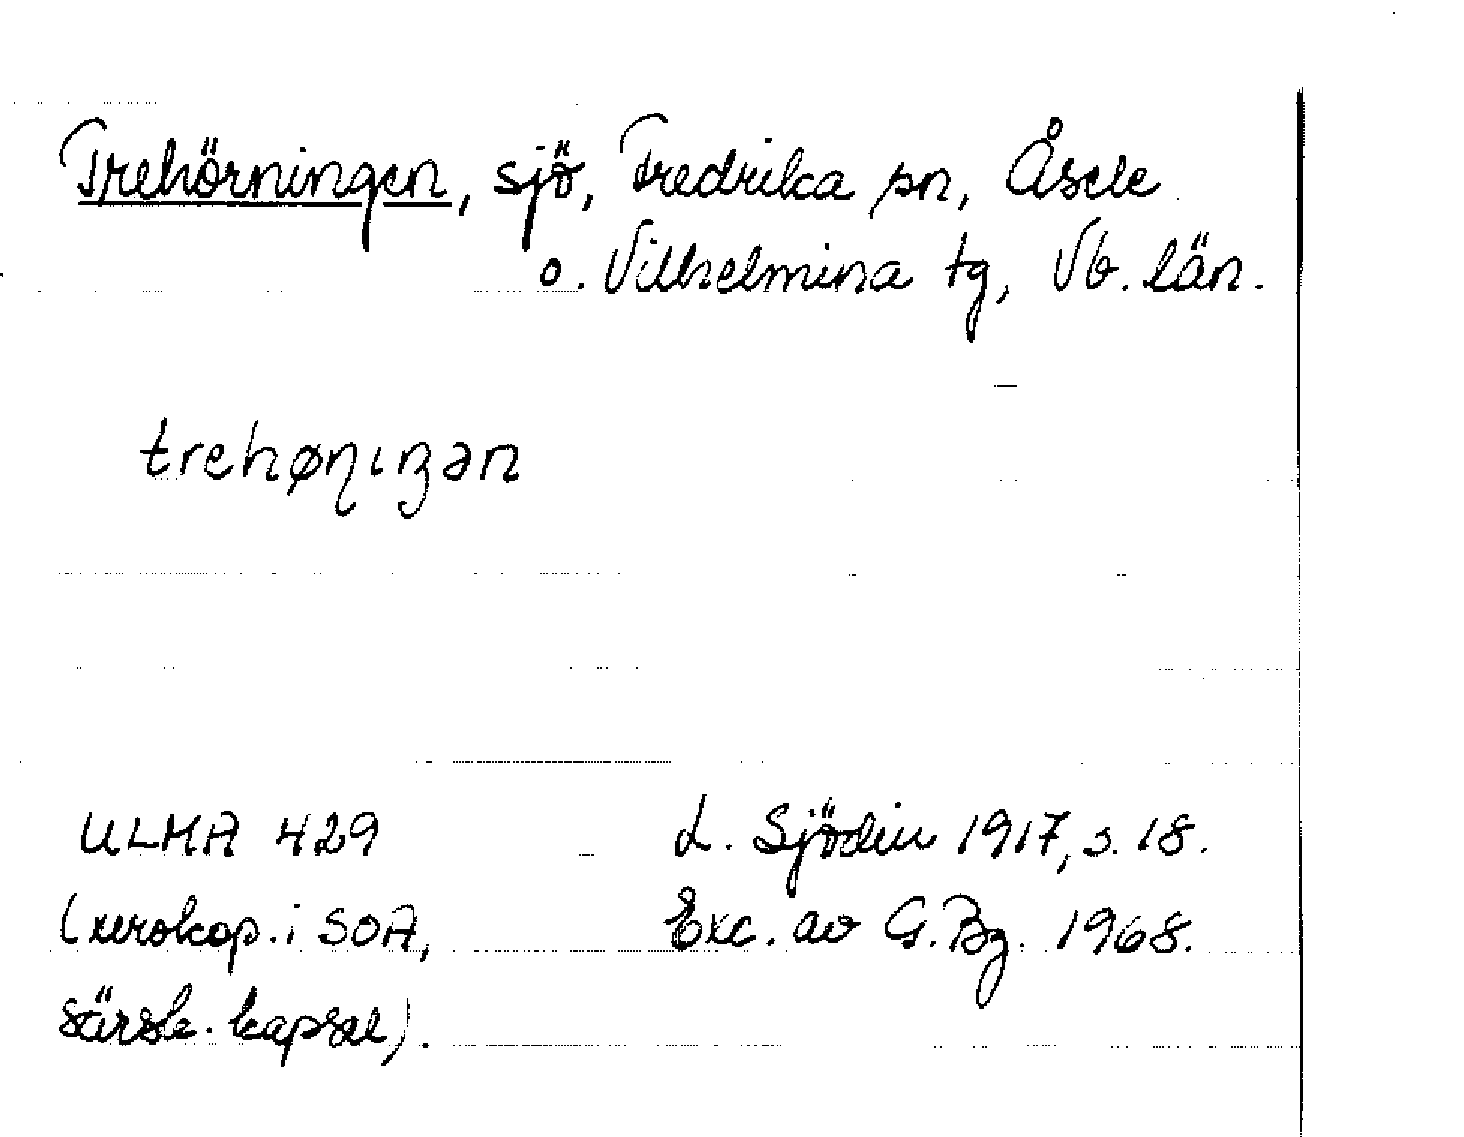 Trehörningen, sjö, Fredrika sn, Åsele
o. Vilhelmina tg, Vb. län.
trehøɳıŋən
ULMA 429
L. Sjödin 1917, s. 18.
(xerokop. i SOA,
Exc. av G. Bg. 1968.
särsk. kapsel).